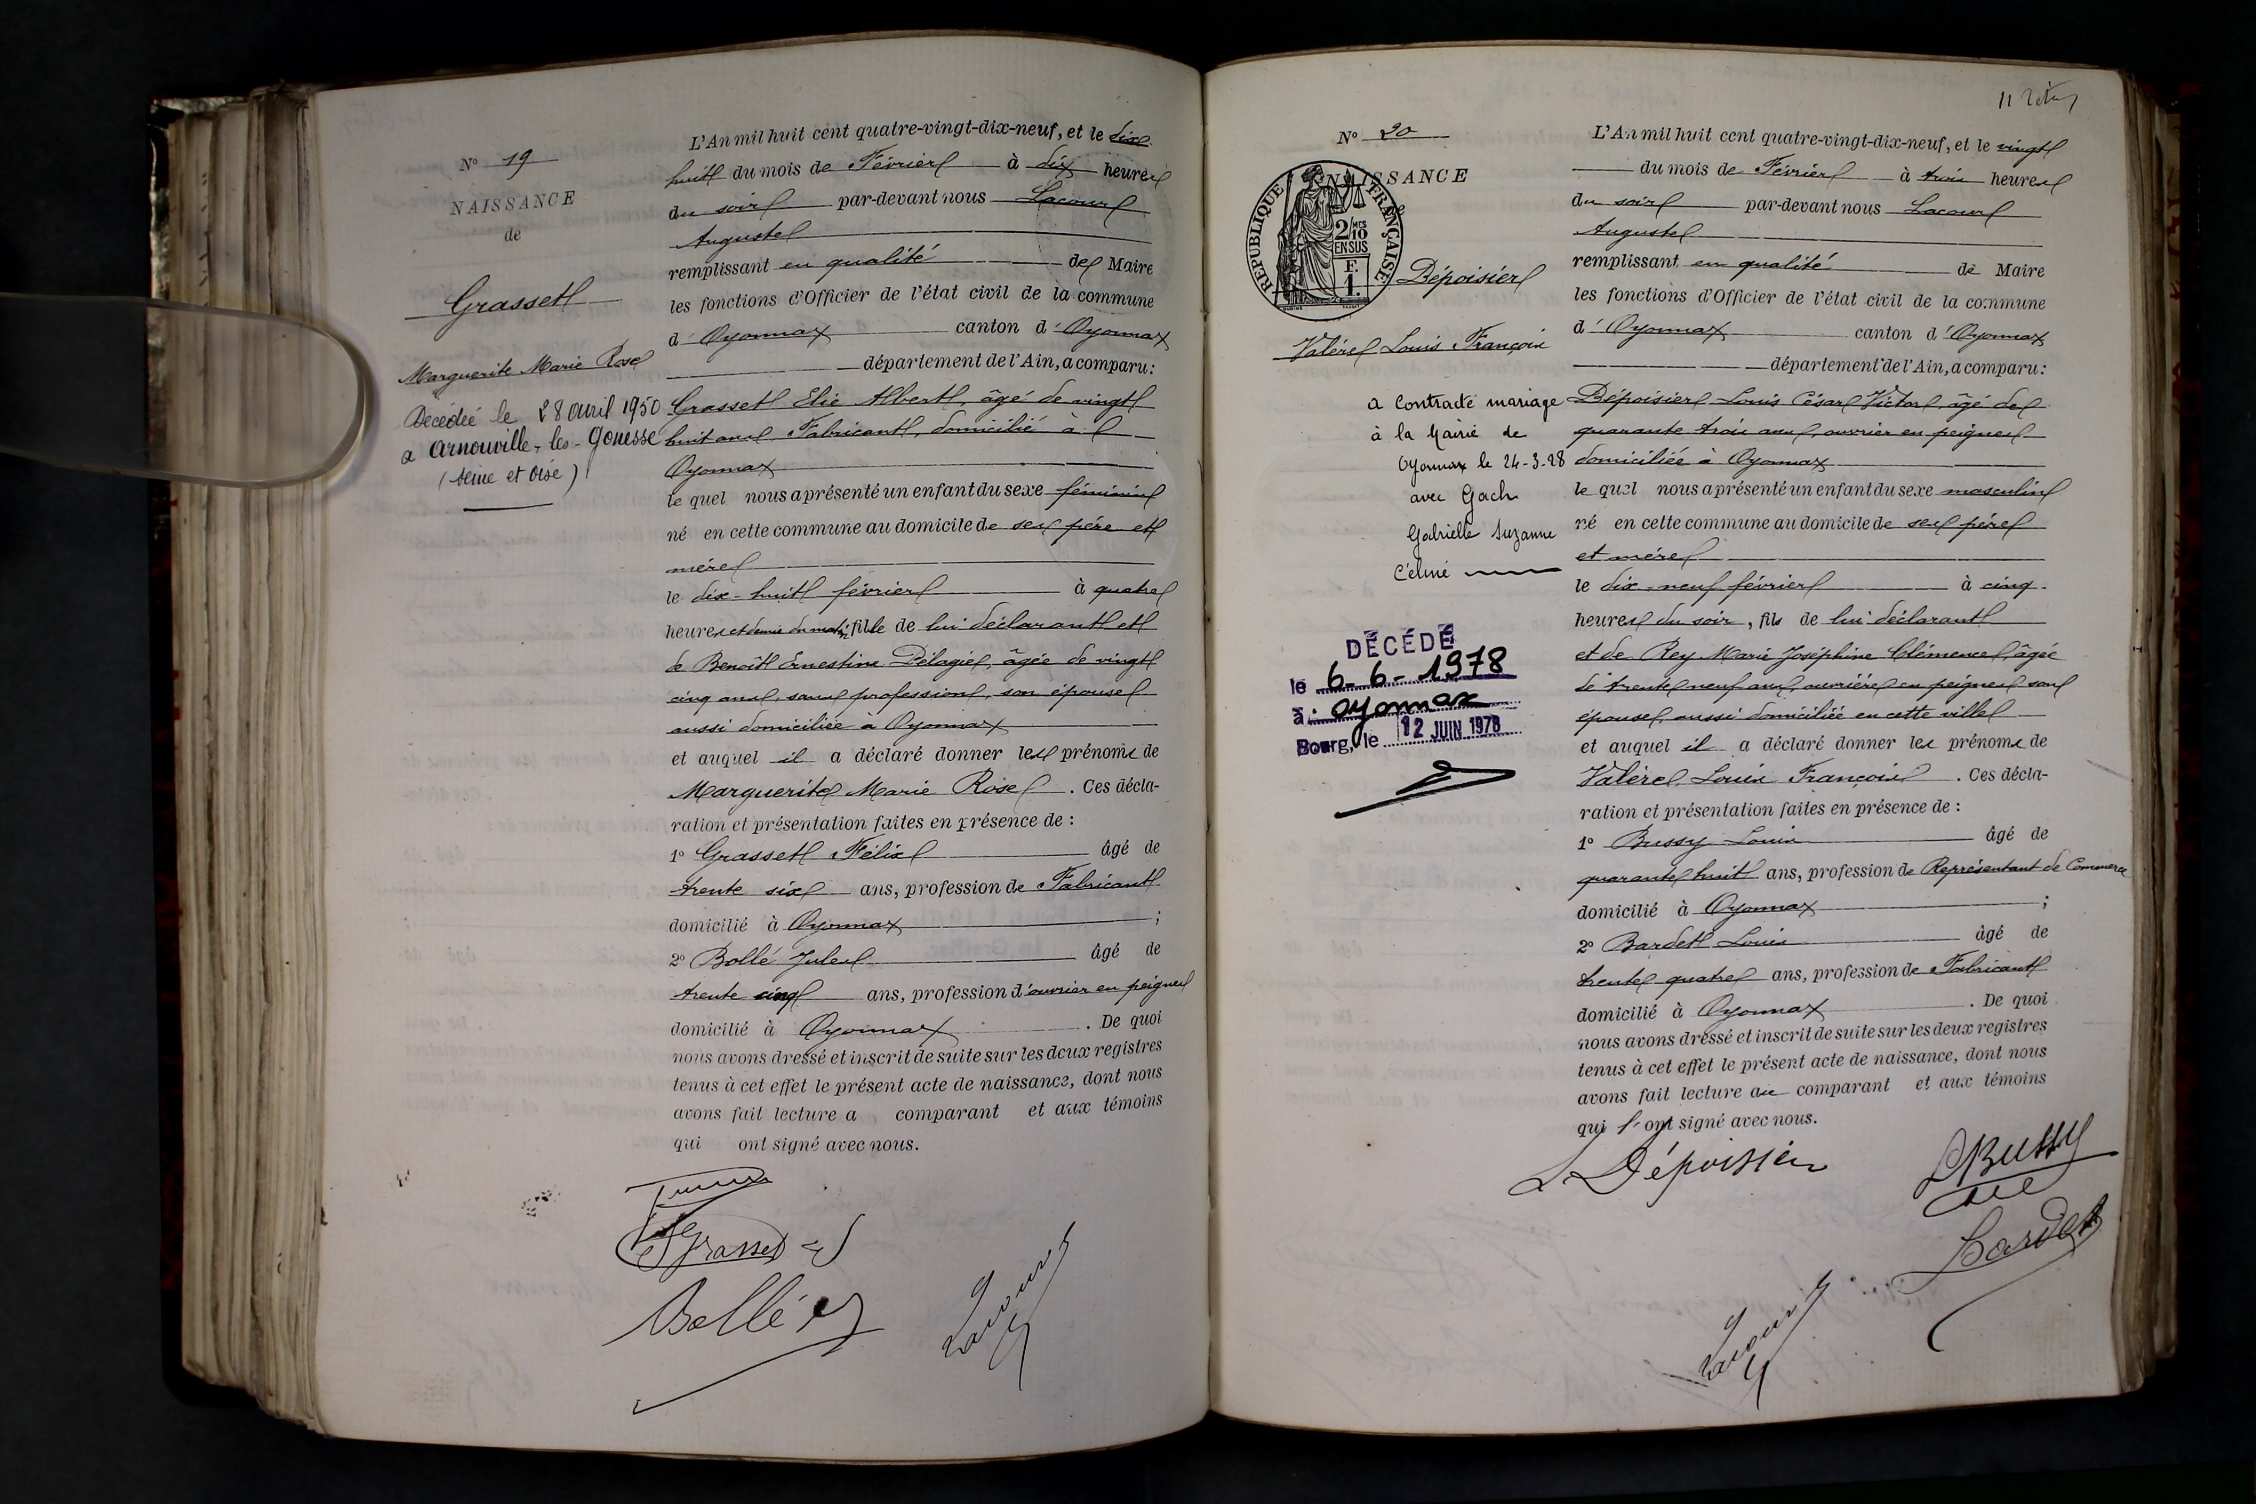 N° 19
NAISSANCE
de
Grasset
Marguerite Marie Rose
Décédée le 28 avril 1950
a Arnouville-les-Gonesse
(Seine et Oise)
L'An mil huit cent quatre-vingt-dix-neuf, et le dix
huit du mois de Février à dix heures
du soir par-devant nous Lacour
Auguste
remplissant en qualité de Maire
les fonctions d'Officier de l'état civil de la commune
d'Oyonnax canton d'Oyonnax
département de l'Ain, a comparu:
Grasset Elie Albert, âgé de vingt
huit ans, Fabricant, domicilié à
Oyonnax
le quel nous a présenté un enfant du sexe féminin
né en cette commune au domicile de ses père et
mère
le dix-huit février à quatre
heures et demie du matin, fille de lui déclarant et
de Benoît Ernestine Pélagie, âgée de vingt
cinq ans, sans profession, son épouse
aussi domiciliée à Oyonnax
et auquel il a déclaré donner les prénoms de
Marguerite Marie Rose. Ces décla-
ration et présentation faites en présence de :
1° Grasset Félix âgé de
trente six ans, profession de Fabricant
domicilié à Oyonnax ;
2° Bollé Jules âgé de
trente cinq ans, profession d'ouvrier en peignes
domicilié à Oyonnax. De quoi
nous avons dressé et inscrit de suite sur les deux registres
tenus à cet effet le présent acte de naissance, dont nous
avons fait lecture a comparant et aux témoins
qui ont signé avec nous.
Grasset
Bollé
Lacour
11
N° 20
NAISSANCE
RÉPUBLIQUE FRANÇAISE
2/10 MES
EN SUS
F.
1.
Dépoisier
Valére Louis François
a Contracté mariage
à la Mairie de
Oyonnax le 24-3-28
avec Gach
Gabrielle Suzanne
Céline
DÉCÉDÉ
le 6-6-1978
à Oyonnax
Bourg, le 12 JUIN 1978
L'An mil huit cent quatre-vingt-dix-neuf, et le vingt
du mois de Février à trois heures
du soir par-devant nous Lacour
Auguste
remplissant en qualité de Maire
les fonctions d'Officier de l'état civil de la commune
d'Oyonnax canton d'Oyonnax
département de l'Ain, a comparu:
Dépoisier Louis César Victor, âgé de
quarante trois ans, ouvrier en peignes
domiciliée à Oyonnax
le quel nous a présenté un enfant du sexe masculin
né en cette commune au domicile de ses père
et mère
le dix-neuf février à cinq
heures du soir, fils de lui déclarant
et de Rey Marie Joséphine Clémence, âgée
de trente neuf ans, ouvrière en peignes son
épouse, aussi domiciliée en cette ville
et auquel il a déclaré donner les prénoms de
Valére Louis François. Ces décla-
ration et présentation faites en présence de :
1° Bussy Louis âgé de
quarante huit ans, profession de Représentant de Commerce
domicilié à Oyonnax ;
2° Bardet Louis âgé de
trente quatre ans, profession de Fabricant
domicilié à Oyonnax. De quoi
nous avons dressé et inscrit de suite sur les deux registres
tenus à cet effet le présent acte de naissance, dont nous
avons fait lecture au comparant et aux témoins
qui l'ont signé avec nous.
L Dépoisier
Bussy
Bardet
Lacour